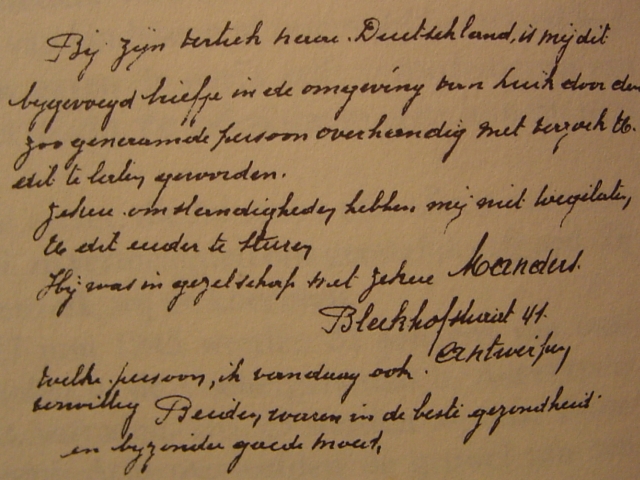 Bij zijn vertrek naar Duitschland, is mij dit
bijgevoegd briefje in de omgeving van Luik door den
zoo genaamde persoon overhandig met verzoek U.
dit te laten geworden.
Zekere omstandigheden hebben mij niet toegelaten,
U dit eerder te sturen
Hij was in gezelschap met zekere Manders.
Bleekhofstraat 41.
Antwerpen
Welke persoon, ik vandaag ook
verwittig Beiden waren in de beste gezondheid
en byzonder goede moed,